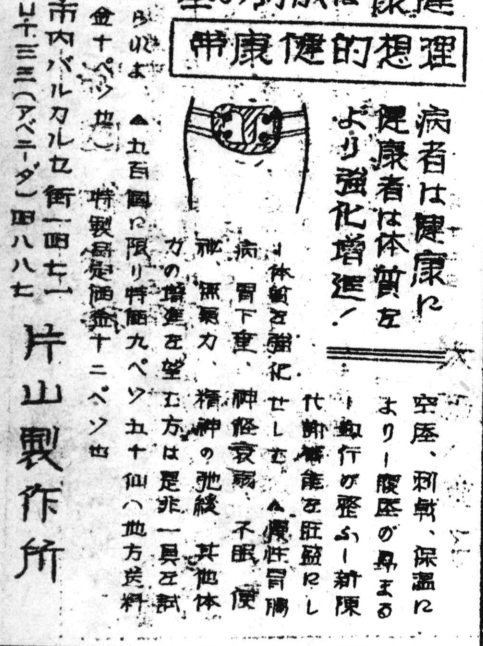 理想的健康帯
病者は健康に
健康者は体質を
より強化増進！
空圧、刺戟、保温に
より―腹圧の昂まる
―血行が整ふ―新陳
代謝機能を旺盛にし
―体質を強化せしむ ▲慢性胃腸
病、胃下垂、神経衰弱、不眠、便
秘、無気力、精神の弛緩、其他体
力の増進を望む方は是非一具を試
▲九百個に限り特価九ペソ五十仙（地方送料
金十ペソ也） 特製品定価金十二ペソ也
市内バルカルセ街一四七一
U・T・三三（アベニーダ）四八八七
片山製作所